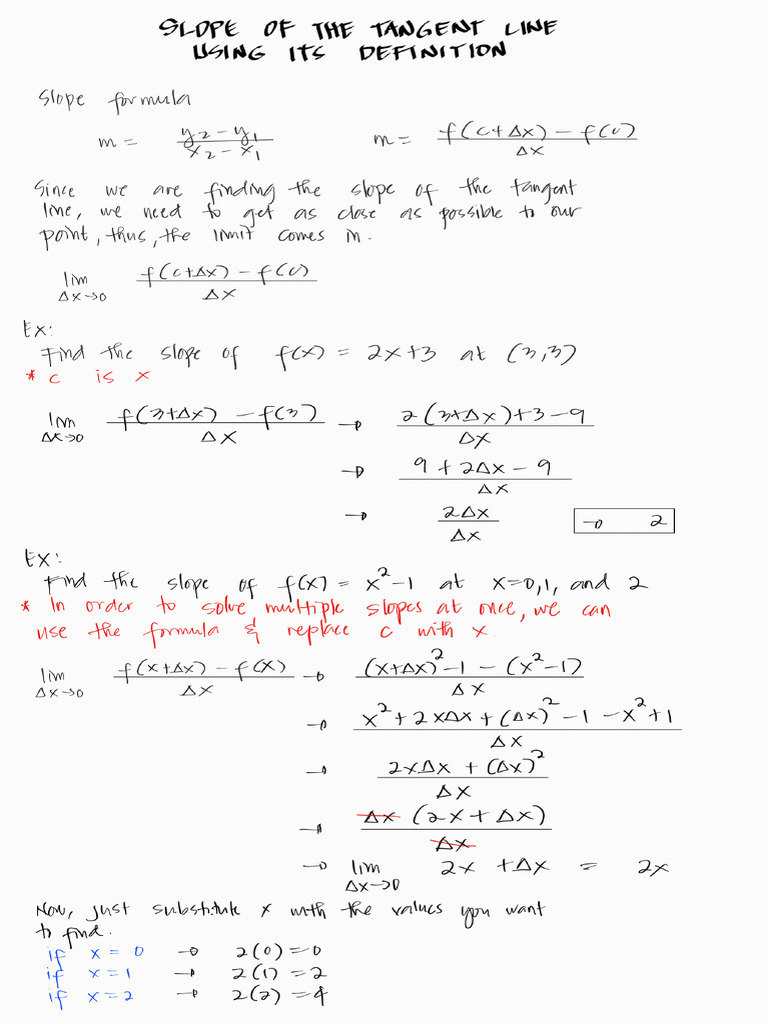 SLOPE OF THE TANGENT LINE
USING ITS DEFINITION
Slope formula
m = (y₂ − y₁)/(x₂ − x₁)    m = (f(c+Δx) − f(c))/Δx
Since we are finding the slope of the tangent
line, we need to get as close as possible to our
point, thus, the limit comes in.
lim Δx→0 (f(c+Δx) − f(c))/Δx
Ex:
Find the slope of f(x) = 2x+3 at (3,3)
* c is x
lim Δx→0 (f(3+Δx) − f(3))/Δx → (2(3+Δx)+3−9)/Δx
→ (9+2Δx−9)/Δx
→ 2Δx/Δx    → 2
Ex:
Find the slope of f(x) = x²−1 at x=0,1, and 2
* In order to solve multiple slopes at once, we can
use the formula & replace c with x.
lim Δx→0 (f(x+Δx) − f(x))/Δx → ((x+Δx)²−1 − (x²−1))/Δx
→ (x²+2xΔx+(Δx)²−1−x²+1)/Δx
→ (2xΔx + (Δx)²)/Δx
→ Δx(2x+Δx)/Δx
→ lim Δx→0 2x +Δx = 2x
Now, just substitute x with the values you want
to find.
if x = 0 → 2(0)=0
if x=1 → 2(1)=2
if x=2 → 2(2)=4